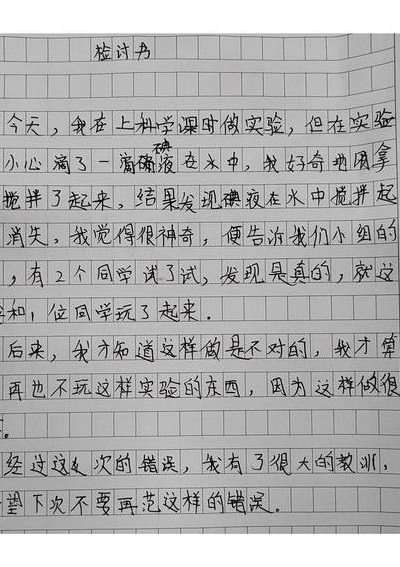 检讨书
今天，我在上科学课时做实验，但在实验
小心滴了一滴碘液在水中，我好奇地用拿
搅拌了起来，结果发现碘液在水中搅拌起
消失，我觉得很神奇，便告诉我们小组的
，有2个同学试了试，发现是真的，就这
和1位同学玩了起来．
后来，我才知道这样做是不对的，我才算
再也不玩这样实验的东西，因为这样做很
。
经过这次的错误，我有了很大的教训，
望下次不要再范这样的错误。